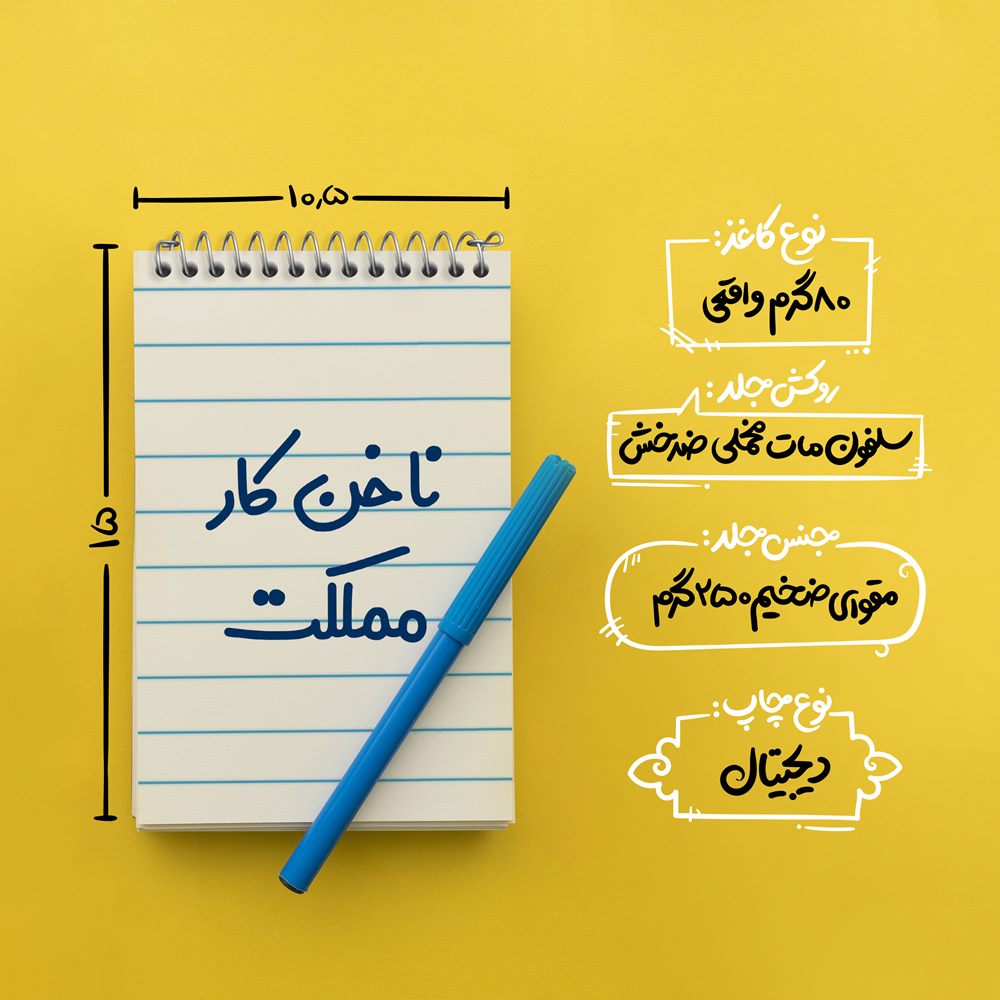 ۱۰٫۵
۱۵
ناخن کار
مملکت
نوع کاغذ:
۸۰ گرم واقعی
روکش جلد:
سلفون مات مخملی ضدخش
جنس جلد:
مقوای ضخیم ۲۵۰ گرم
نوع چاپ:
دیجیتال